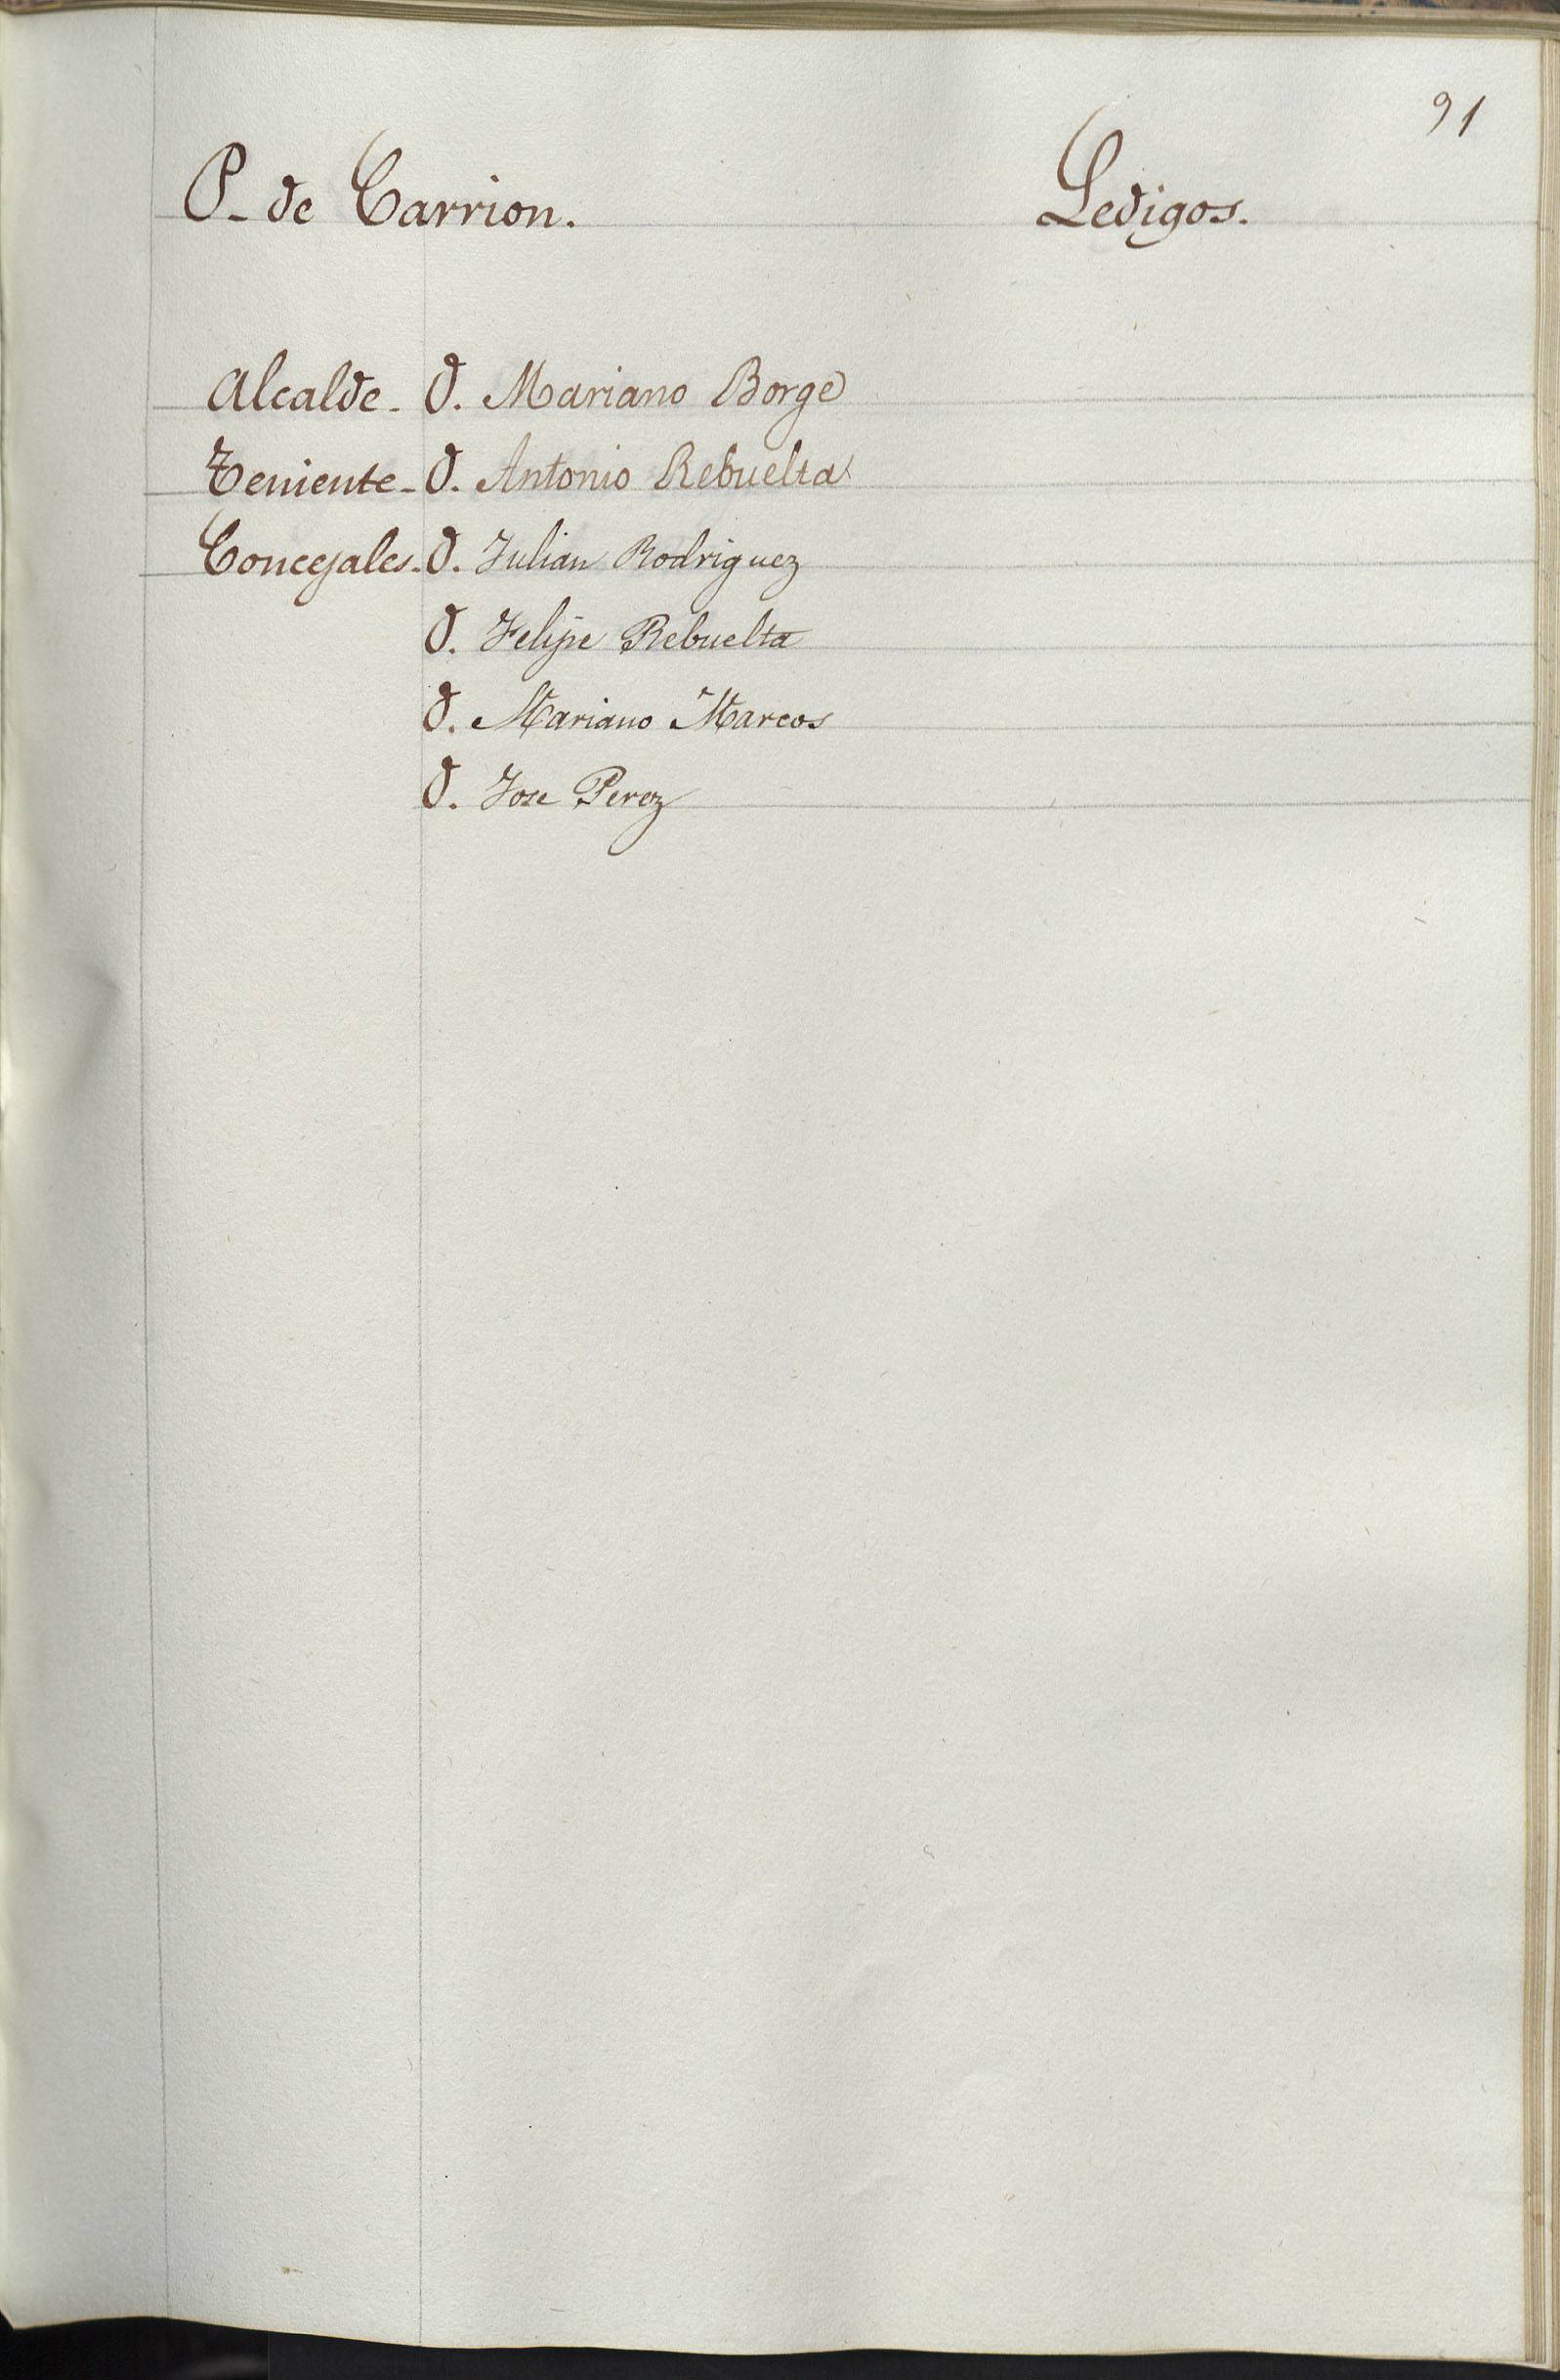 91
P. de Carrion. Ledigos.
Alcalde - D. Mariano Borge
Teniente - D. Antonio Rebuelta
Concejales - D. Julian Rodriguez
D. Felipe Rebuelta
D. Mariano Marcos
D. Jose Perez